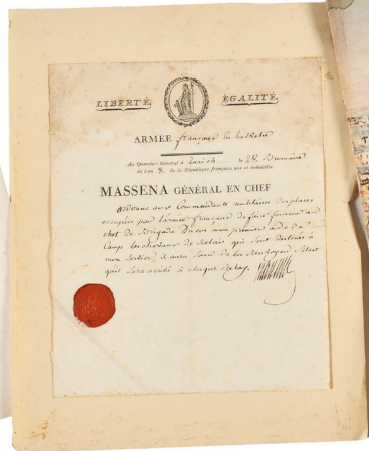 LIBERTÉ, ÉGALITÉ.
ARMÉE française en helvétie
Au Quartier-Général à Zurich le 28 Brumaire
de l'an 8. de la République française une et indivisible.
MASSENA GÉNÉRAL EN CHEF
ordonne aux Commandants militaires des places
occupées par l'armée française de faire fournir au
chef de Brigade mon premier aide de
Camp les chevaux de Relais qui sont destinés à
mon service, il aura soin de les Renvoyer
qu'il sera arrivé à chaque Relay.